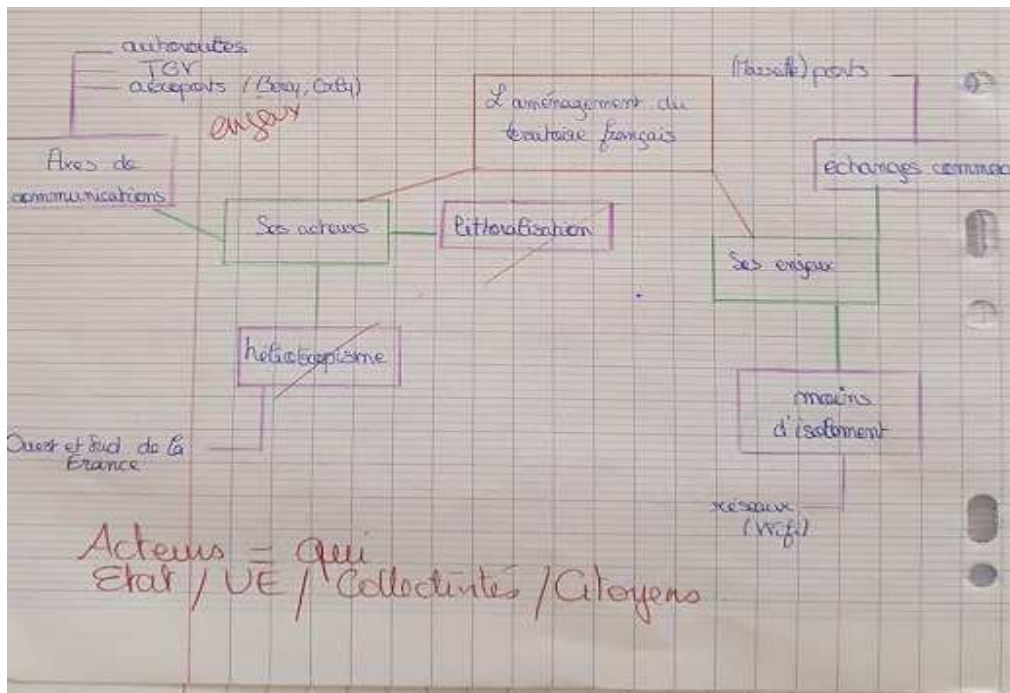 autoroutes
TGV
aéroports (Bercy, Orly)
enjeux
Axes de
communications
L'aménagement du
territoire français
(Marseille) ports
échanges commerc
Ses acteurs
littoralisation
Ses enjeux
héliotropisme
Ouest et Sud de la
France
moins
d'isolement
réseaux
(Wifi)
Acteurs = qui
Etat / UE / Collectivités / Citoyens